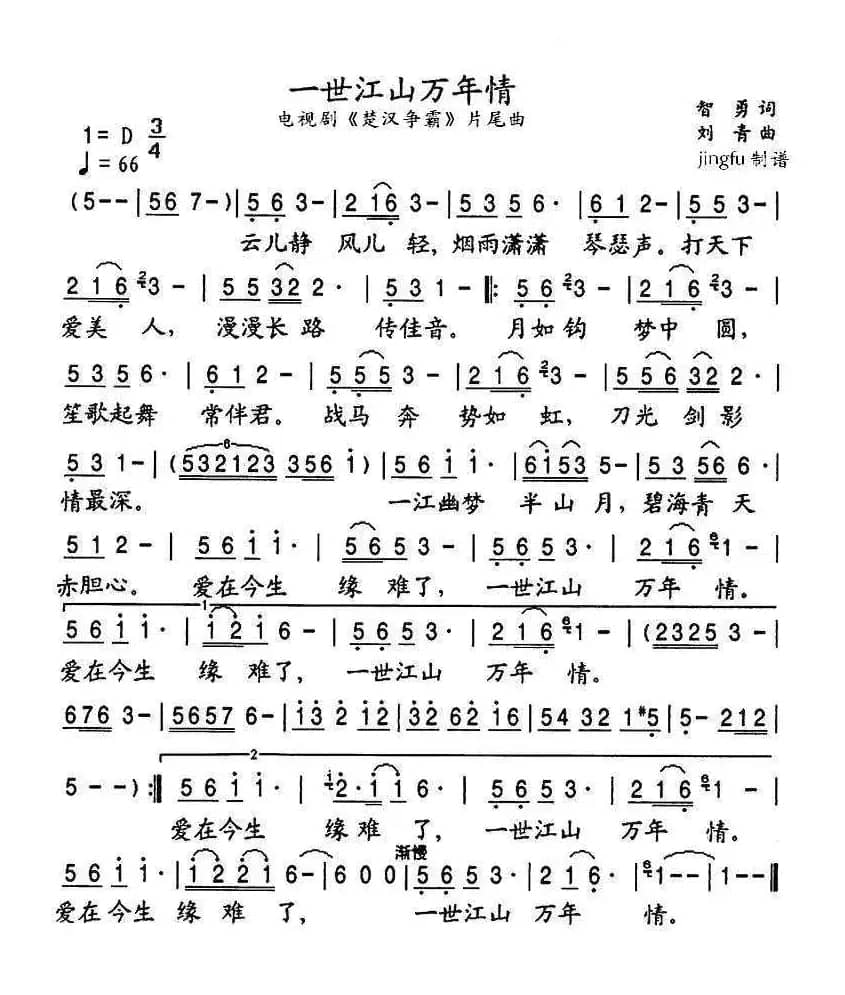 一世江山万年情
电视剧《楚汉争霸》片尾曲
智勇词
刘青曲
jingfu 制谱
1=D 3/4
♩=66
(5--|56 7-)|56 3-|216 3-|53 56·|61 2-|55 3-|
云儿静 风儿 轻，烟雨潇潇 琴瑟声。打天下
216 3-|55 32 2·|53 1-‖:56 3-|216 3-|
爱美 人， 漫漫长路 传佳音。月如钩 梦中 圆，
53 56·|61 2-|555 3-|216 3-|556 32 2·|
笙歌起舞 常伴君。战马 奔 势如 虹，刀光 剑影
53 1-|(532123 356 i)|56 i i·|6i53 5-|53 56 6·|
情最深。 一江幽梦 半山月，碧海青天
51 2-|56 i i·|5653-|5653·|216 1-|
赤胆心。 爱在今生 缘 难了， 一世江山 万年 情。
1
56 i i·|i2i 6-|565 3·|216 1-|(2325 3-|
爱在今生 缘 难了， 一世江山 万年 情。
676 3-|5657 6-|i3 2 i2|32 62 i6|54 32 1#5|5- 212|
2
5--):‖56 i i·|2·i i i 6·|565 3·|216 1-|
爱在今生 缘难 了， 一世江山 万年 情。
渐慢
56 i i·|i22i 6-|600|5653·|216·|1--|1--‖
爱在今生 缘 难 了， 一世江山 万年 情。